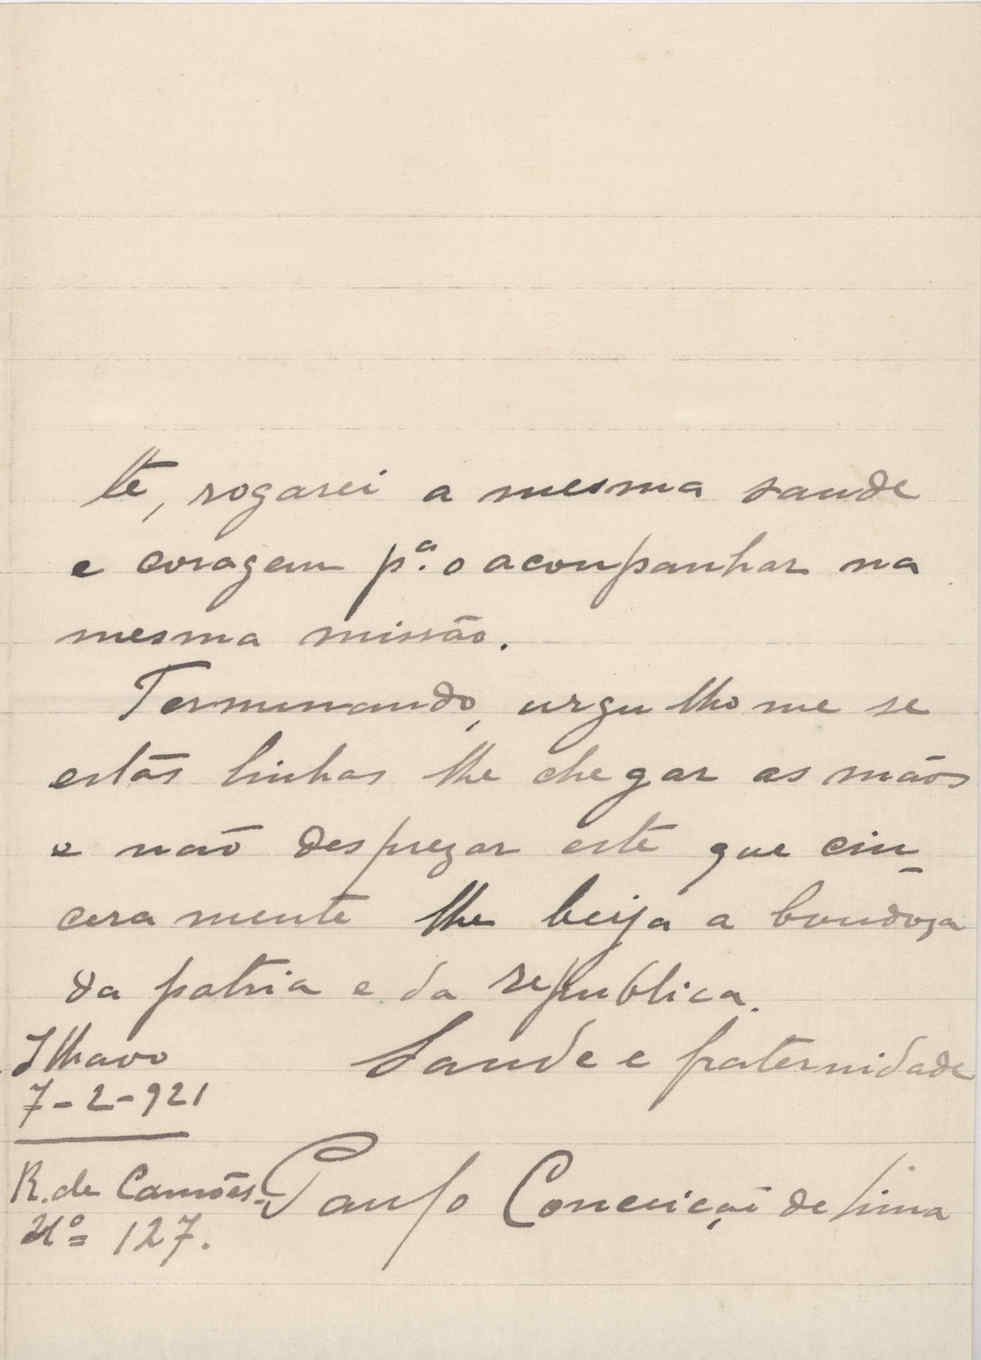 te, rogarei a mesma saude
e coragem pª. o aconpanhar na
mesma missão.
Terminando, urgulho me se
estás linhas lhe chegar as mãos
e não desprezar este que cin-
cera mente lhe beija a bondoza
da patria e da republica.
Ilhavo Saude e fraternidade
7-2-921
R. de Camões. Paulo Conceição de Lima
Nº 127.